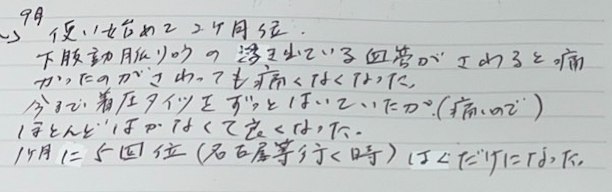 9月
→使い始めて2ヶ月位.
下肢動脈リウの浮き出ている血管がさわると痛
かったのがさわっても痛くなくなった,
今まで着圧タイツをずっとはいていたが,(痛いので)
ほとんどはかなくて良くなった.
1ヶ月に5回位(名古屋等行く時)はくだけになった.